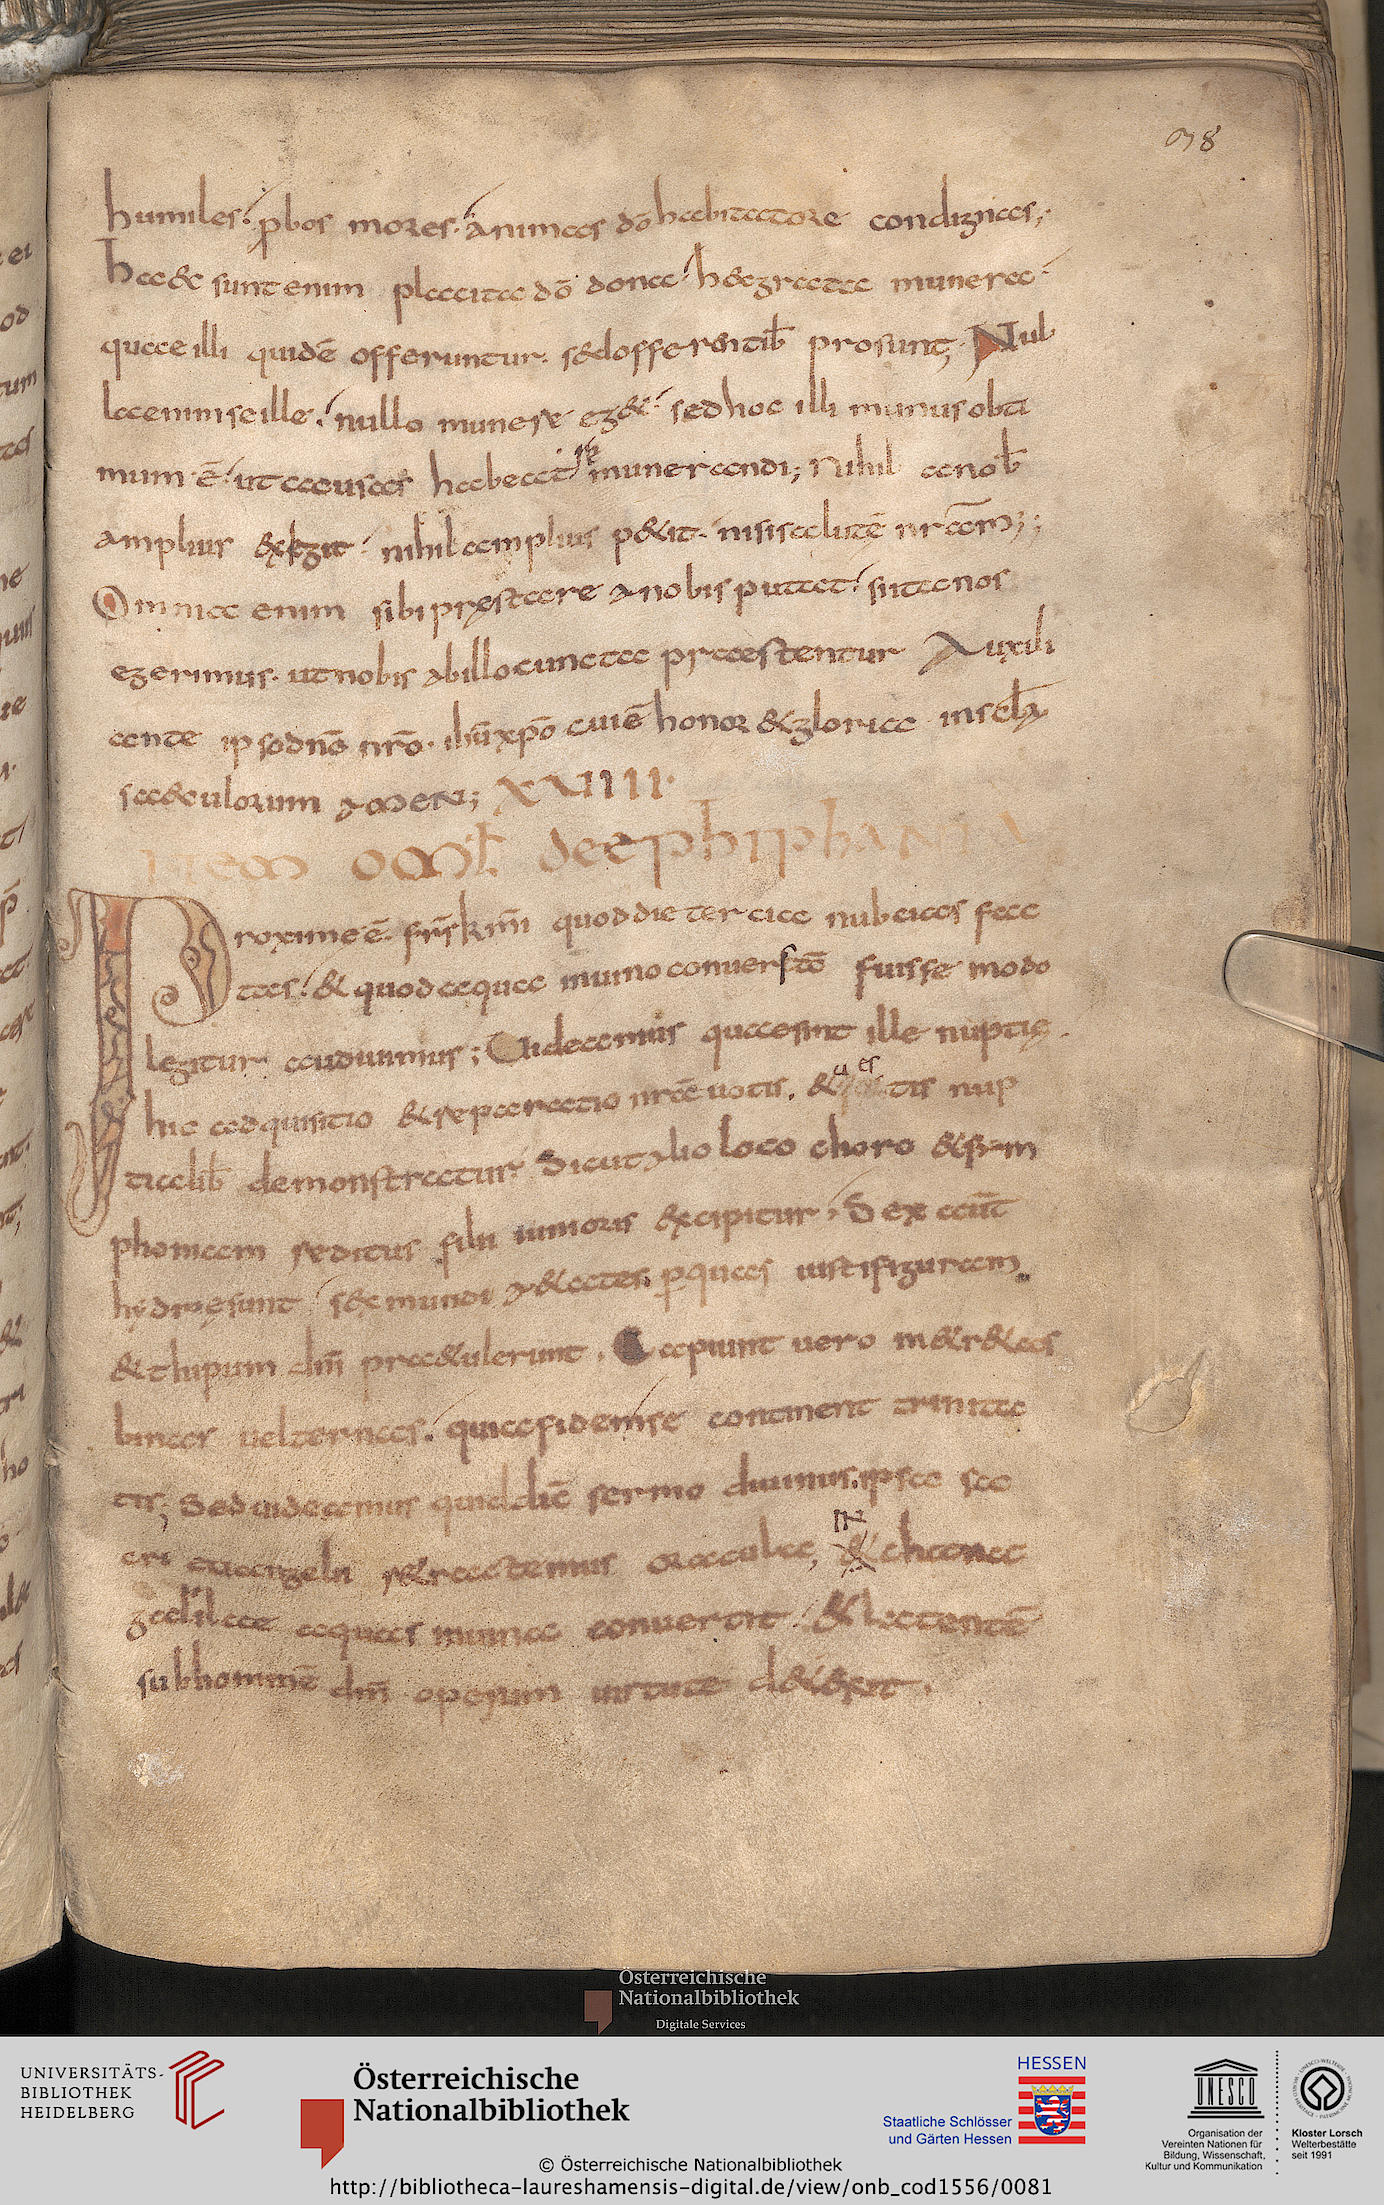 38
humiles. ꝓbos mores. animas dō habitatore condignas;
haec sunt enim placita dō dona. haec grata munera.
quae illi quidē offeruntur. sed offerentib; prosunt; Nul
la enim se ille. nullo munere eget. sed hoc illi munus opti
mum ē. ut ea uisas habeat munerandi; Nihil a nob
amplius exigit. nihil amplius petit. nisi salutē nr̄am;
Omnia enim sibi prestare a nobis putat. si ita nos
egerimus. ut nobis ab illo cuncta praestentur Auxili
ante ipso dn̄o nr̄o. ihū xp̄o cui ē honor et gloria in sc̄la
saeculorum amen; XXVIIII.
item oml̄. de ephiphania
Proxime ē. fr̄s km̄i quod die tercia nubcias fac
tas. et quod aqua in uino conuersto fuisse modo
legitur audiuimus; Uideamus quae sint ille nuptie.
hic adquisitio et reparatio nr̄ae uotis. et tis nup
tialib; demonstratur Sicut alio loco choro et sim
phoniam reditus filii iunioris excipitur, Sex aūt
hydrie sunt sex mundi aetates ꝑ quas iusti figuram
et thipum dn̄i praetulerunt. Capiunt uero metretas
binas uel ternas. quia fidem se continent trinita
tis; Sed uideamus quid diē sermo diuinus. ipsa sac
eri euangelii retractemus oracula; IN chana
galileae aquas in uina conuertit. et latentē
sub homine dn̄i operum uirtute detexit.
Österreichische
Nationalbibliothek
Digitale Services
UNIVERSITÄTS-
BIBLIOTHEK
HEIDELBERG
Österreichische
Nationalbibliothek
HESSEN
Staatliche Schlösser
und Gärten Hessen
UNESCO
Organisation der
Vereinten Nationen für
Bildung, Wissenschaft,
Kultur und Kommunikation
Kloster Lorsch
Welterbestätte
seit 1991
© Österreichische Nationalbibliothek
http://bibliotheca-laureshamensis-digital.de/view/onb_cod1556/0081